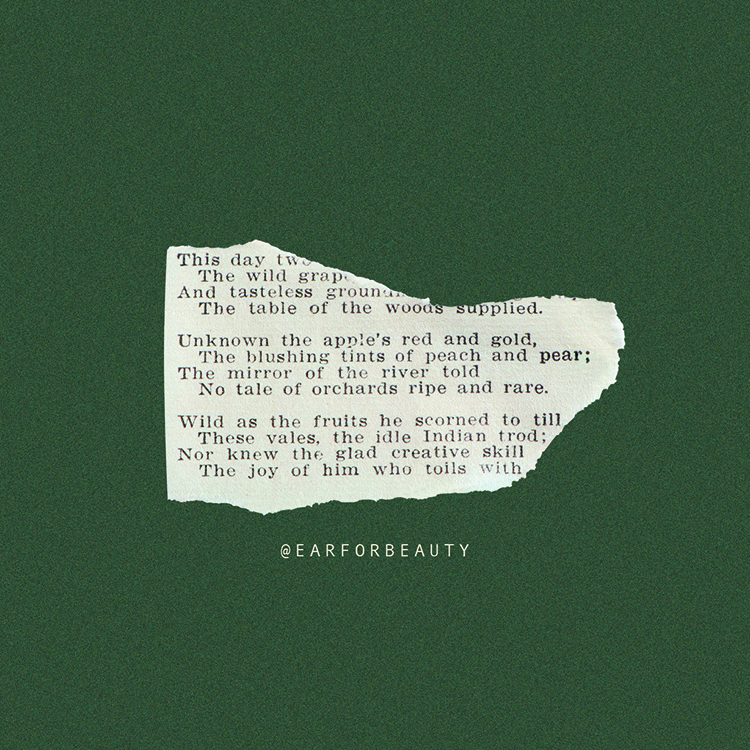 This day
The wild
And tasteless
The table of the woods supplied.
Unknown the apple's red and gold,
The blushing tints of peach and pear;
The mirror of the river told
No tale of orchards ripe and rare.
Wild as the fruits he scorned to till
These vales, the idle Indian trod;
Nor knew the glad creative skill
The joy of him who toils with
@EARFORBEAUTY